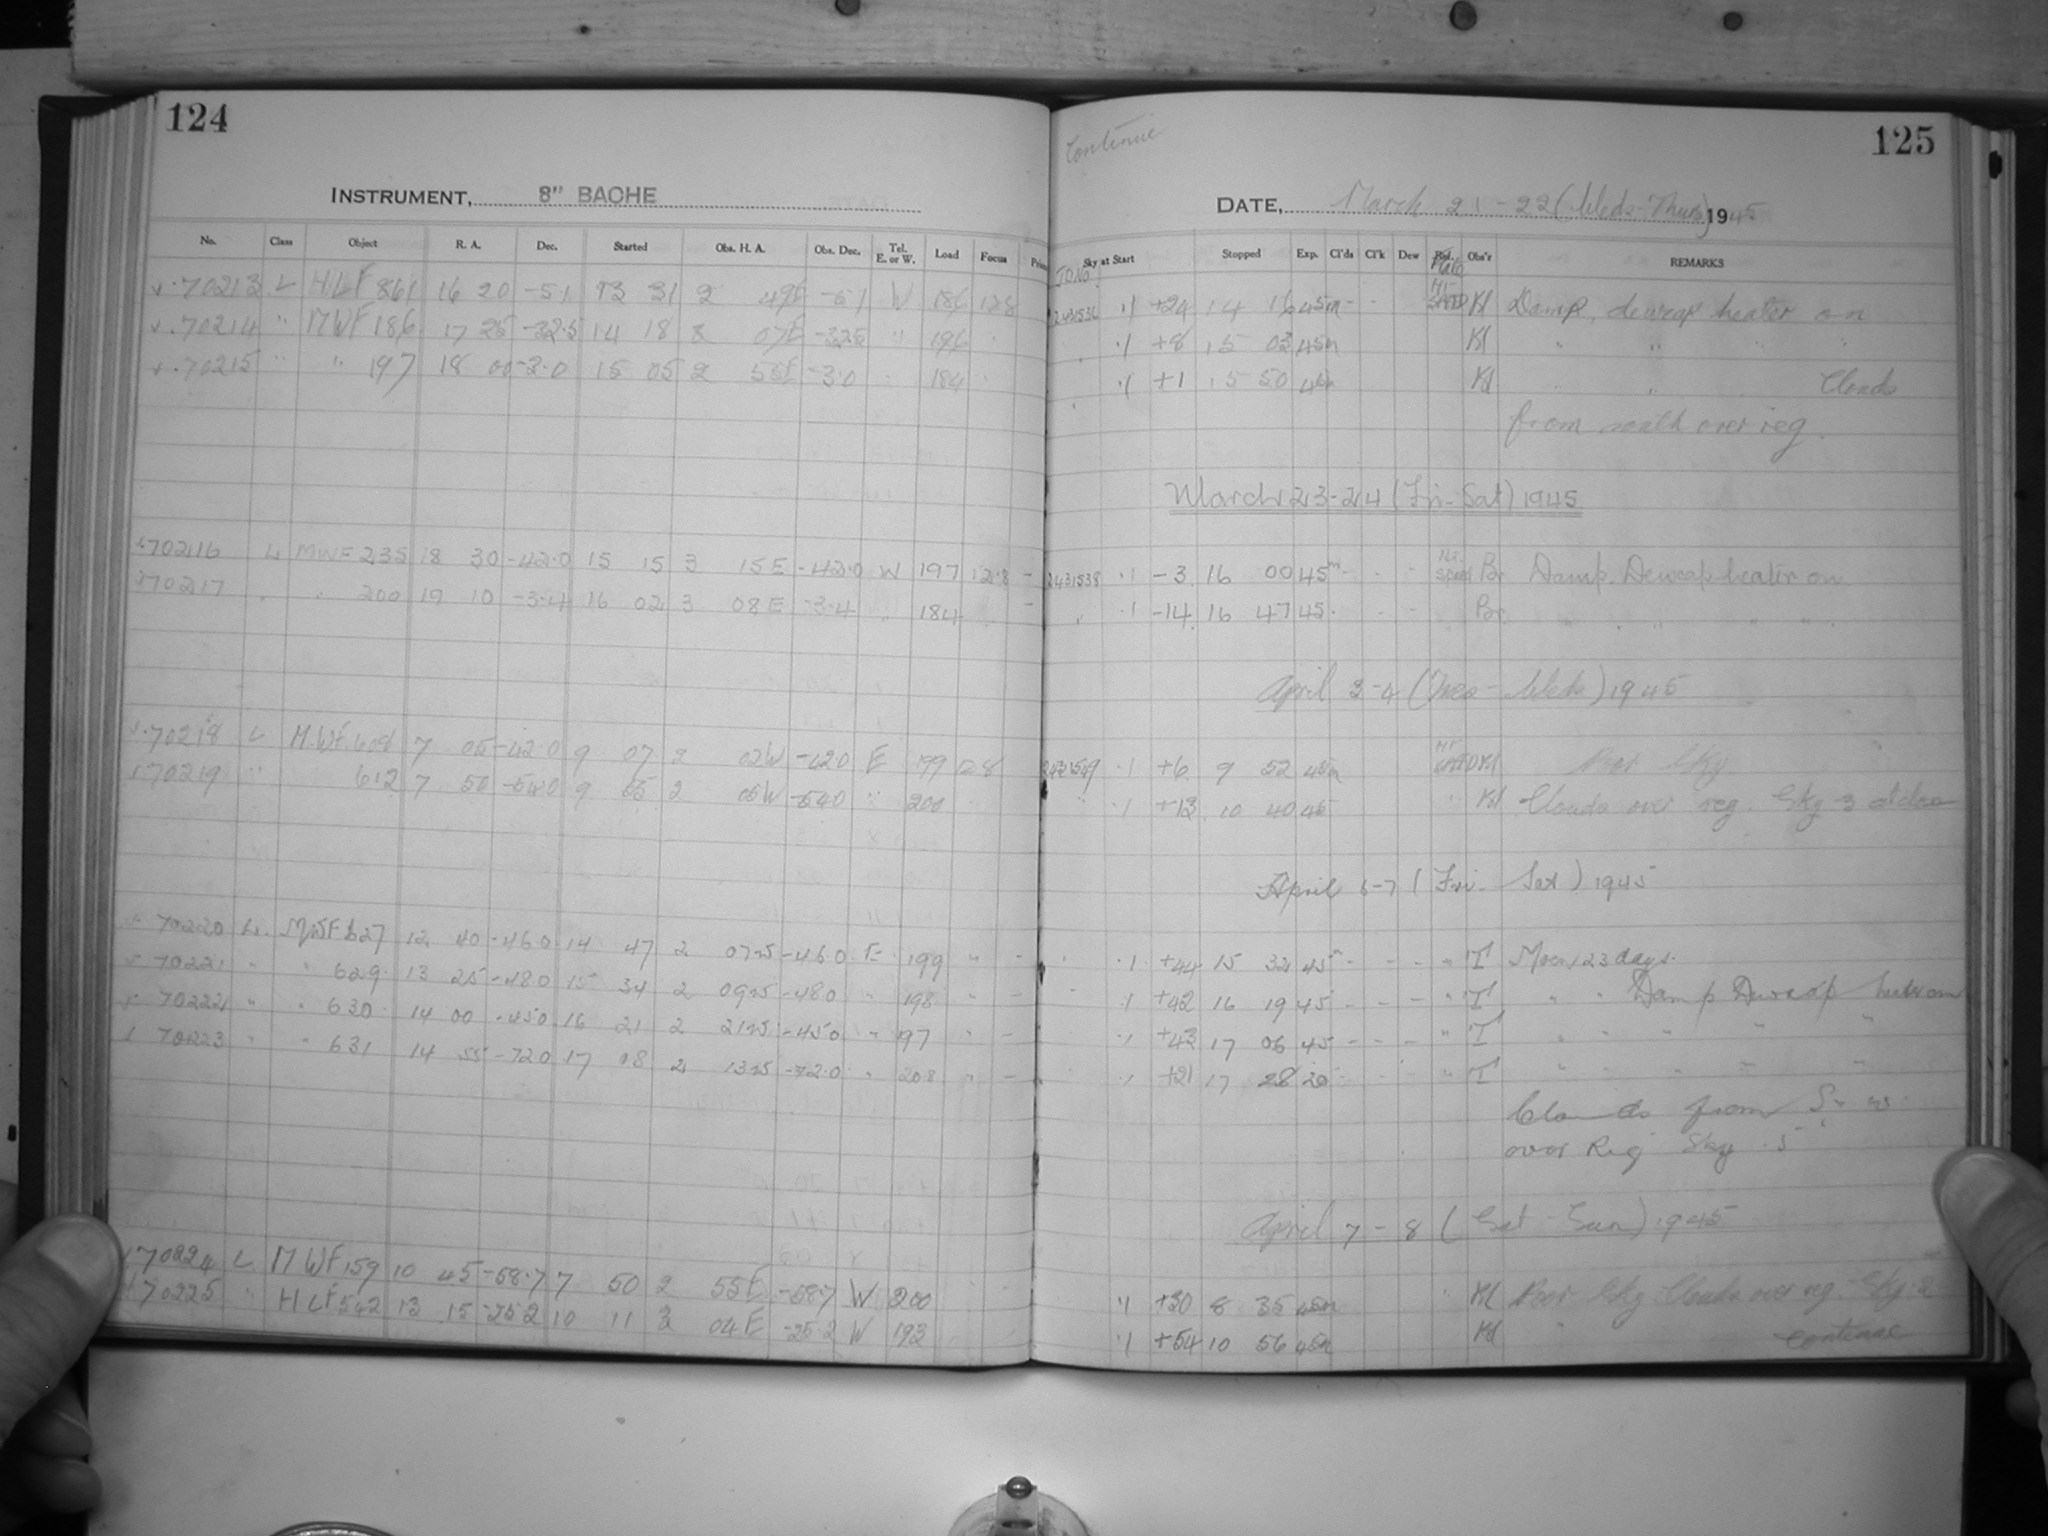 124
INSTRUMENT, 8" BACHE
No. Class Object R. A. Dec. Started Obs. H. A. Obs. Dec. Tel. E. or W. Load Focus
70213 L HLF 861 16 20 -51 13 31 2 49E -51 W 186 128
70214 " MWF 186 17 25 -32.5 14 18 3 07E -325 " 196 "
70215 " " 197 18 00 -3.0 15 05 2 55E -3.0 " 184 "
70216 L MWF 235 18 30 -42.0 15 15 3 15 E -42.0 W 197 12.8 -
70217 " " 200 19 10 -3.4 16 02 3 08 E -3.4 " 184 -
70218 L MWF 608 7 05 -42.0 9 07 2 02W -420 E 199 128
70219 " 612 7 50 -540 9 55 2 05W -540 " 200
70220 L. MWF 627 12 40 -46.0 14 47 2 07W -46.0 E 199 " -
70221 " " 629 13 25 -480 15 34 2 09W -480 " 198 " -
70222 " " 630 14 00 -450 16 21 2 21W -45.0 " 197 " -
70223 " " 631 14 55 -720 17 08 2 13W -72.0 " 208 " -
70224 L MWF 159 10 45 -58.7 7 50 2 55E -587 W 200
70225 " HLF 542 13 15 -25 2 10 11 3 04 E -25.2 W 193
Continue
125
DATE, March 21-22 (Weds-Thurs) 1945
Sky at Start Stopped Exp. Cl'ds Cl'k Dew Plate Obs'r REMARKS
J.D.No.
2431536 .1 +24 14 16 45m - - HI-SPEED Kl Damp, dewcap heater on
" .1 +8 15 03 45m Kl " " " "
" .1 +1 15 50 45m Kl " " Clouds
from south over reg.
March 23-24 (Fri-Sat) 1945
2431538 .1 -3 16 00 45m - - - Hi-Speed Br Damp. Dewcap heater on
" .1 -14 16 47 45. Br " " " "
April 3-4 (Tues-Weds) 1945
2431549 .1 +6 9 52 45m HI-SPEED Kl Poor Sky
" .1 +13 10 40 45 " Kl Clouds over reg. Sky 3 at close
April 6-7 (Fri-Sat) 1945
" .1 +44 15 32 45m - - - " T Moon 23 days.
" .1 +42 16 19 45 - - - " T " " Damp Dewcap heater on
.1 +43 17 06 45 - - - " T " " " " "
.1 +21 17 28 20 - - - " T " " " " "
Clouds from S. W.
over Reg Sky .5
April 7-8 (Sat-Sun) 1945
.1 +30 8 35 45m " Kl Poor Sky Clouds over reg. Sky .2
.1 +54 10 56 45m Kl " continue